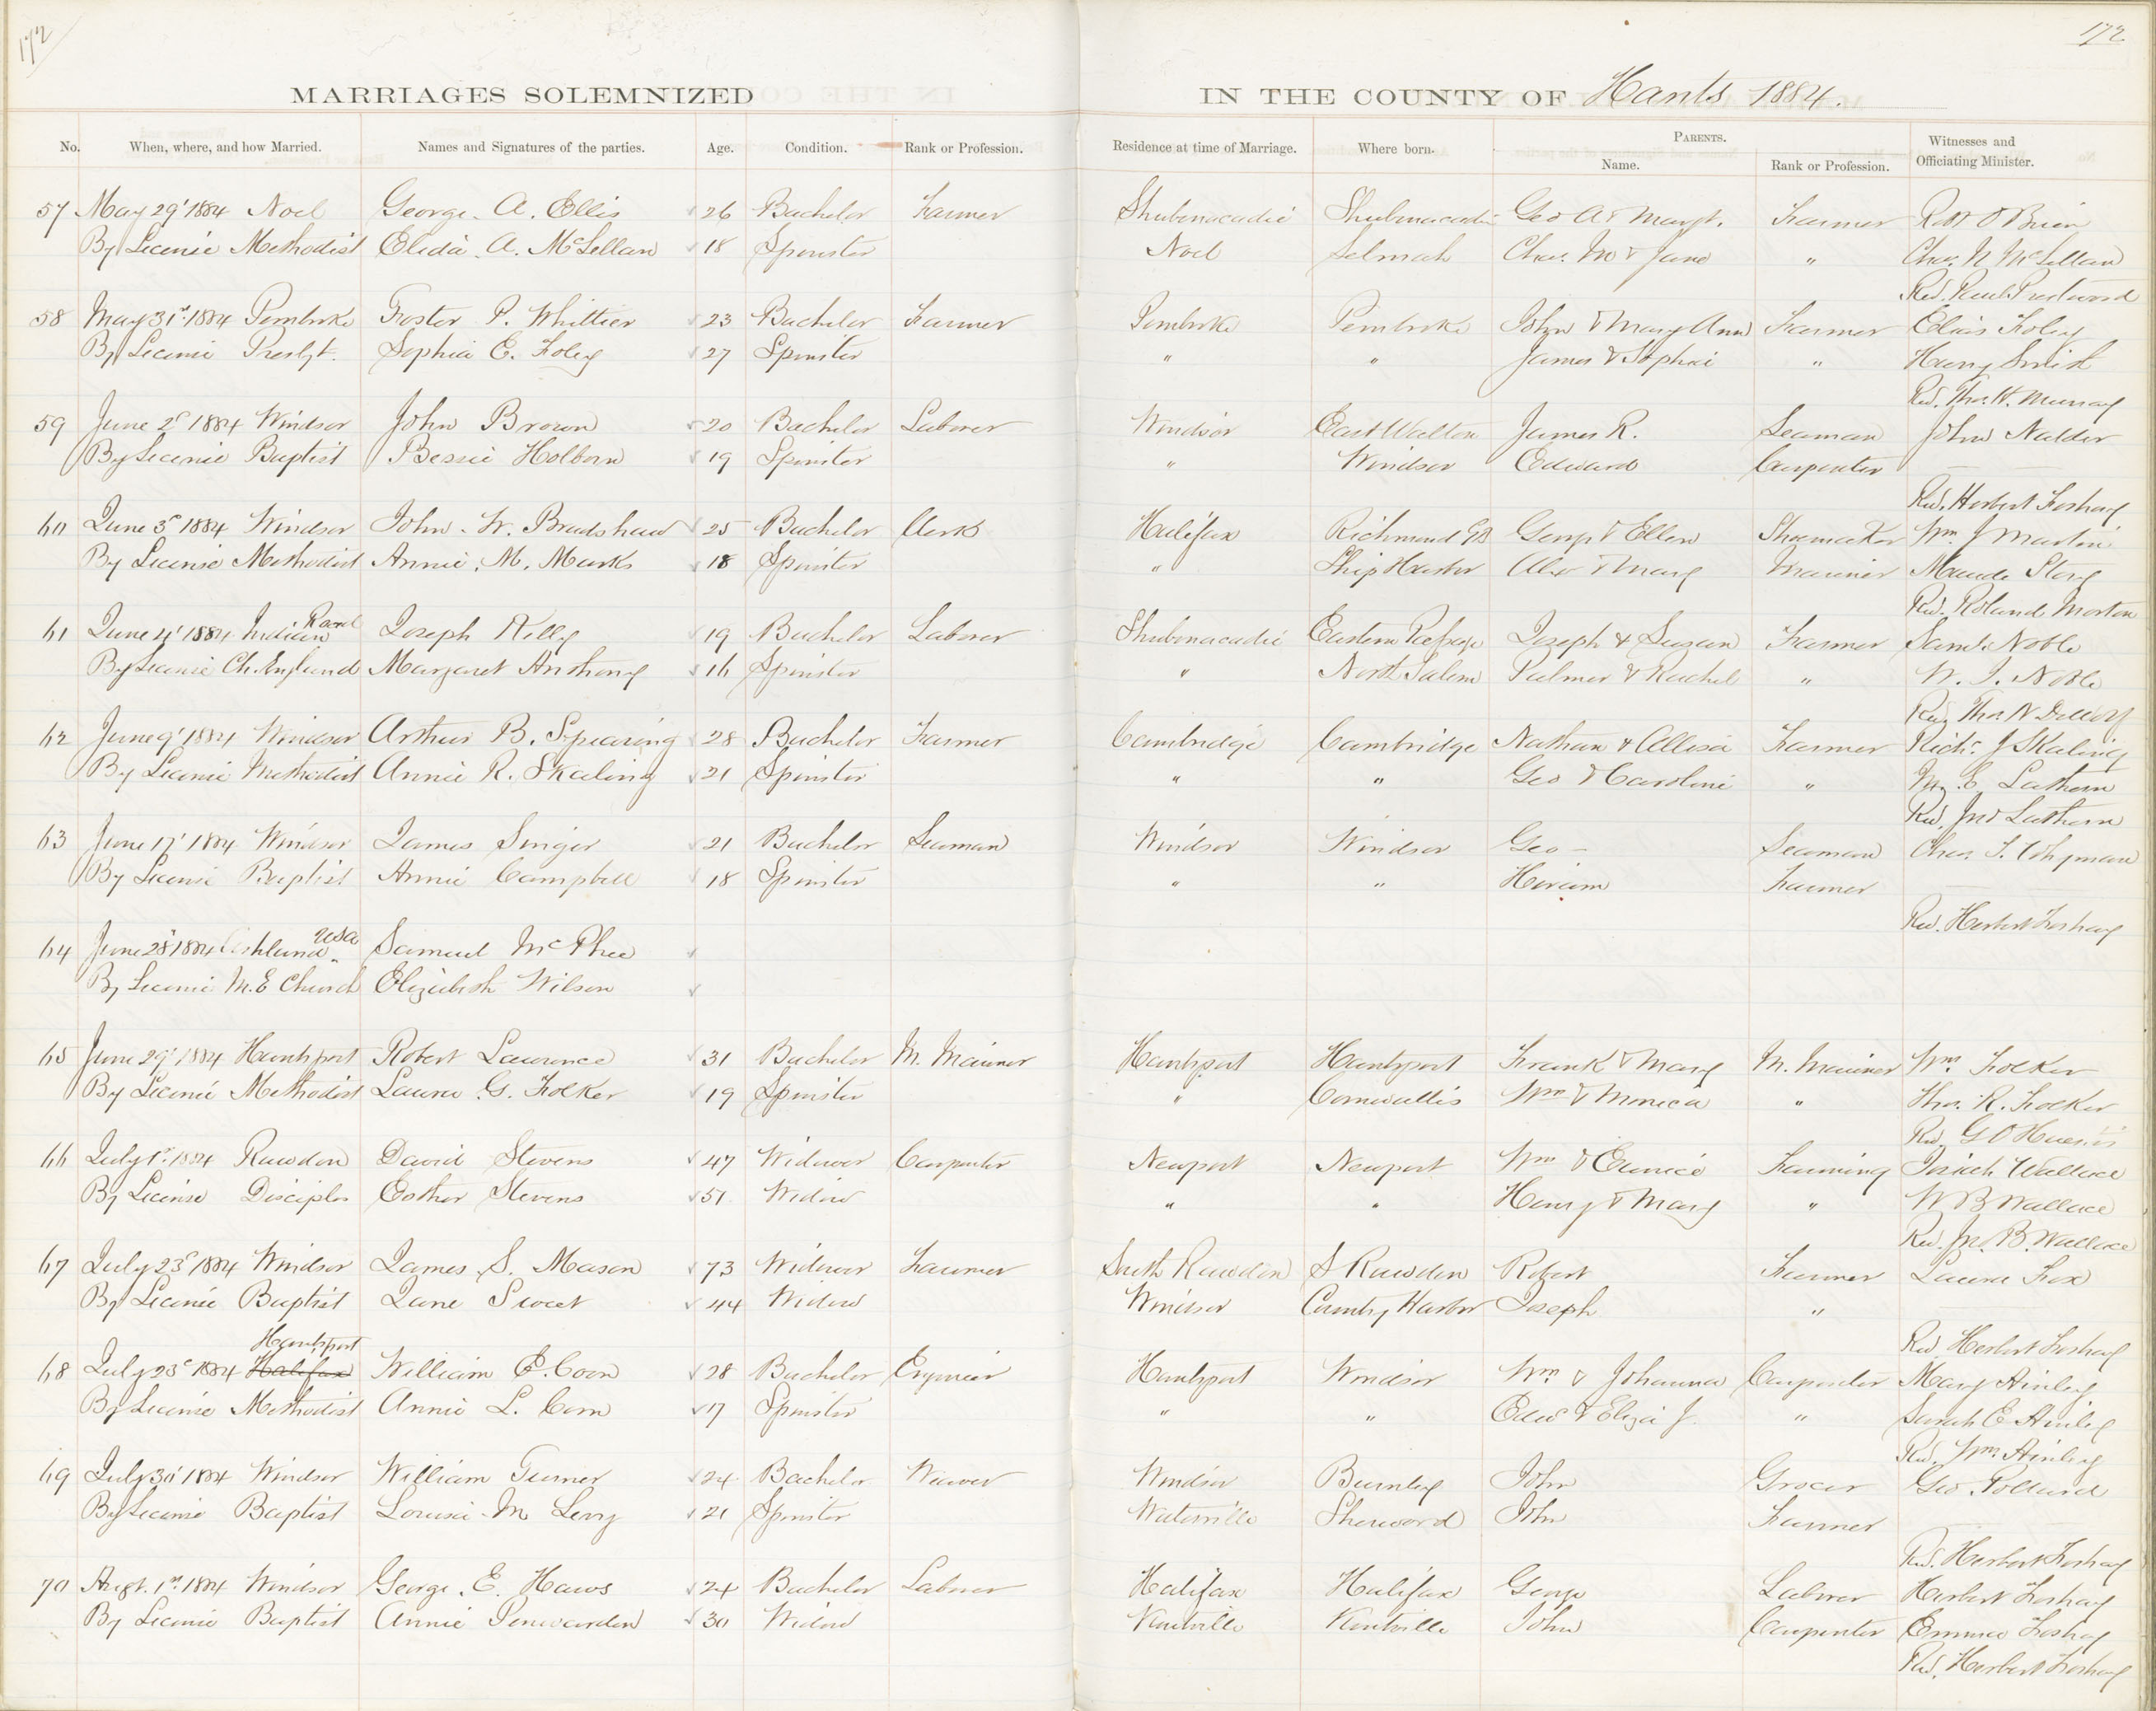 172
172
MARRIAGES SOLEMNIZED IN THE COUNTY OF Hants 1884.
No. When, where, and how Married. Names and Signatures of the parties. Age. Condition. Rank or Profession. Residence at time of Marriage. Where born. PARENTS. Name. Rank or Profession. Witnesses and Officiating Minister.
57 May 29' 1884 Noel George. A. Ellis 26 Bachelor Farmer Shubenacadie Shubenacadie Geo A & Margt. Farmer Robt O'Brien
By Licence Methodist Elida A. McLellan 18 Spinster Noel Selmah Chas. M & Jane " Chas. N McLellan
Rev. Prestwood
58 May 31st 1884 Pembroke Foster P. Whittier 23 Bachelor Farmer Pembroke Pembroke John & Mary Ann Farmer Elias Foley
By Licence Presbyt. Sophia E. Foley 27 Spinster " " James & Sophia " Harry Smith
Rev. Thos. W. Murray
59 June 2d 1884 Windsor John Brown 20 Bachelor Laborer Windsor East Walton James R. Seaman John Nalder
By Licence Baptist Bessie Holborn 19 Spinster " Windsor Edward Carpenter
Rev. Herbert Foshay
60 June 3d 1884 Windsor John. W. Bradshaw 25 Bachelor Clerk Halifax Richmond GB George & Ellen Shoemaker Wm. J Martin
By Licence Methodist Annie. M. Marks 18 Spinster " Ship Harbor Alex & Mary Mariner Maude Story
Rev. Roland Morton
61 June 4' 1884 Indian Road Joseph Killy 19 Bachelor Laborer Shubenacadie Eastern Passage Joseph & Susan Farmer Saml. Noble
By Licence Ch. England Margaret Anthony 16 Spinster " North Salem Palmer & Rachel " W. J. Noble
Rev. Thos N
62 June 9' 1884 Windsor Arthur B. Spearing 28 Bachelor Farmer Cambridge Cambridge Nathan & Allisa Farmer Richd. J Skaling
By Licence Methodist Annie R. Skaling 21 Spinster " " Geo & Caroline " M. E. Lathern
Rev. Jno Lathern
63 June 17' 1884 Windsor James Singer 21 Bachelor Seaman Windsor Windsor Geo - Seaman Chas. T.
By Licence Baptist Annie Campbell 18 Spinster " " Hiram Farmer
Rev. Herbert Foshay
64 June 28' 1884 Ashland USA Samuel McPhee
By Licence M.E Church Elizabeth Wilson
65 June 29' 1884 Hantsport Robert Lawrence 31 Bachelor M. Mariner Hantsport Hantsport Frank & Mary M. Mariner Wm. Folker
By Licence Methodist Laura. G. Folker 19 Spinster " Cornwallis Wm & Monica " Thos. R. Folker
Rev. G O Huestis
66 July 1st 1884 Rawdon David Stevens 47 Widower Carpenter Newport Newport Wm & Eunice Farming Isaiah Wallace
By License Disciples Esther Stevens 51 Widow " " Henry & Mary " W B Wallace
Rev. Jno. B. Wallace
67 July 23d 1884 Windsor James. S. Mason 73 Widower Farmer South Rawdon S Rawdon Robert Farmer Laura Fox
By Licence Baptist Jane 44 Widow Windsor Country Harbor Joseph "
Rev. Herbert Foshay
68 July 23d 1884 Halifax Hantsport William E. Coon 28 Bachelor Engineer Hantsport Windsor Wm. & Johanna Carpenter Mary Ainley
By Licence Methodist Annie L. Corn 17 Spinster " " Edwd & Eliza J. " Sarah E Ainley
Rev. Wm. Ainley
69 July 30' 1884 Windsor William Turner 24 Bachelor Weaver Windsor Burnley John Grocer Geo. Pollard
By Licence Baptist Louisa M Levy 21 Spinster Waterville Sherwood John Farmer
Rev. Herbert Foshay
70 Augt. 1st 1884 Windsor George. E. Haws 24 Bachelor Laborer Halifax Halifax George Laborer Herbert Foshay
By Licence Baptist Annie Penwarden 30 Widow Kentville Kentville John Carpenter Emma Foshay
Rev. Herbert Foshay